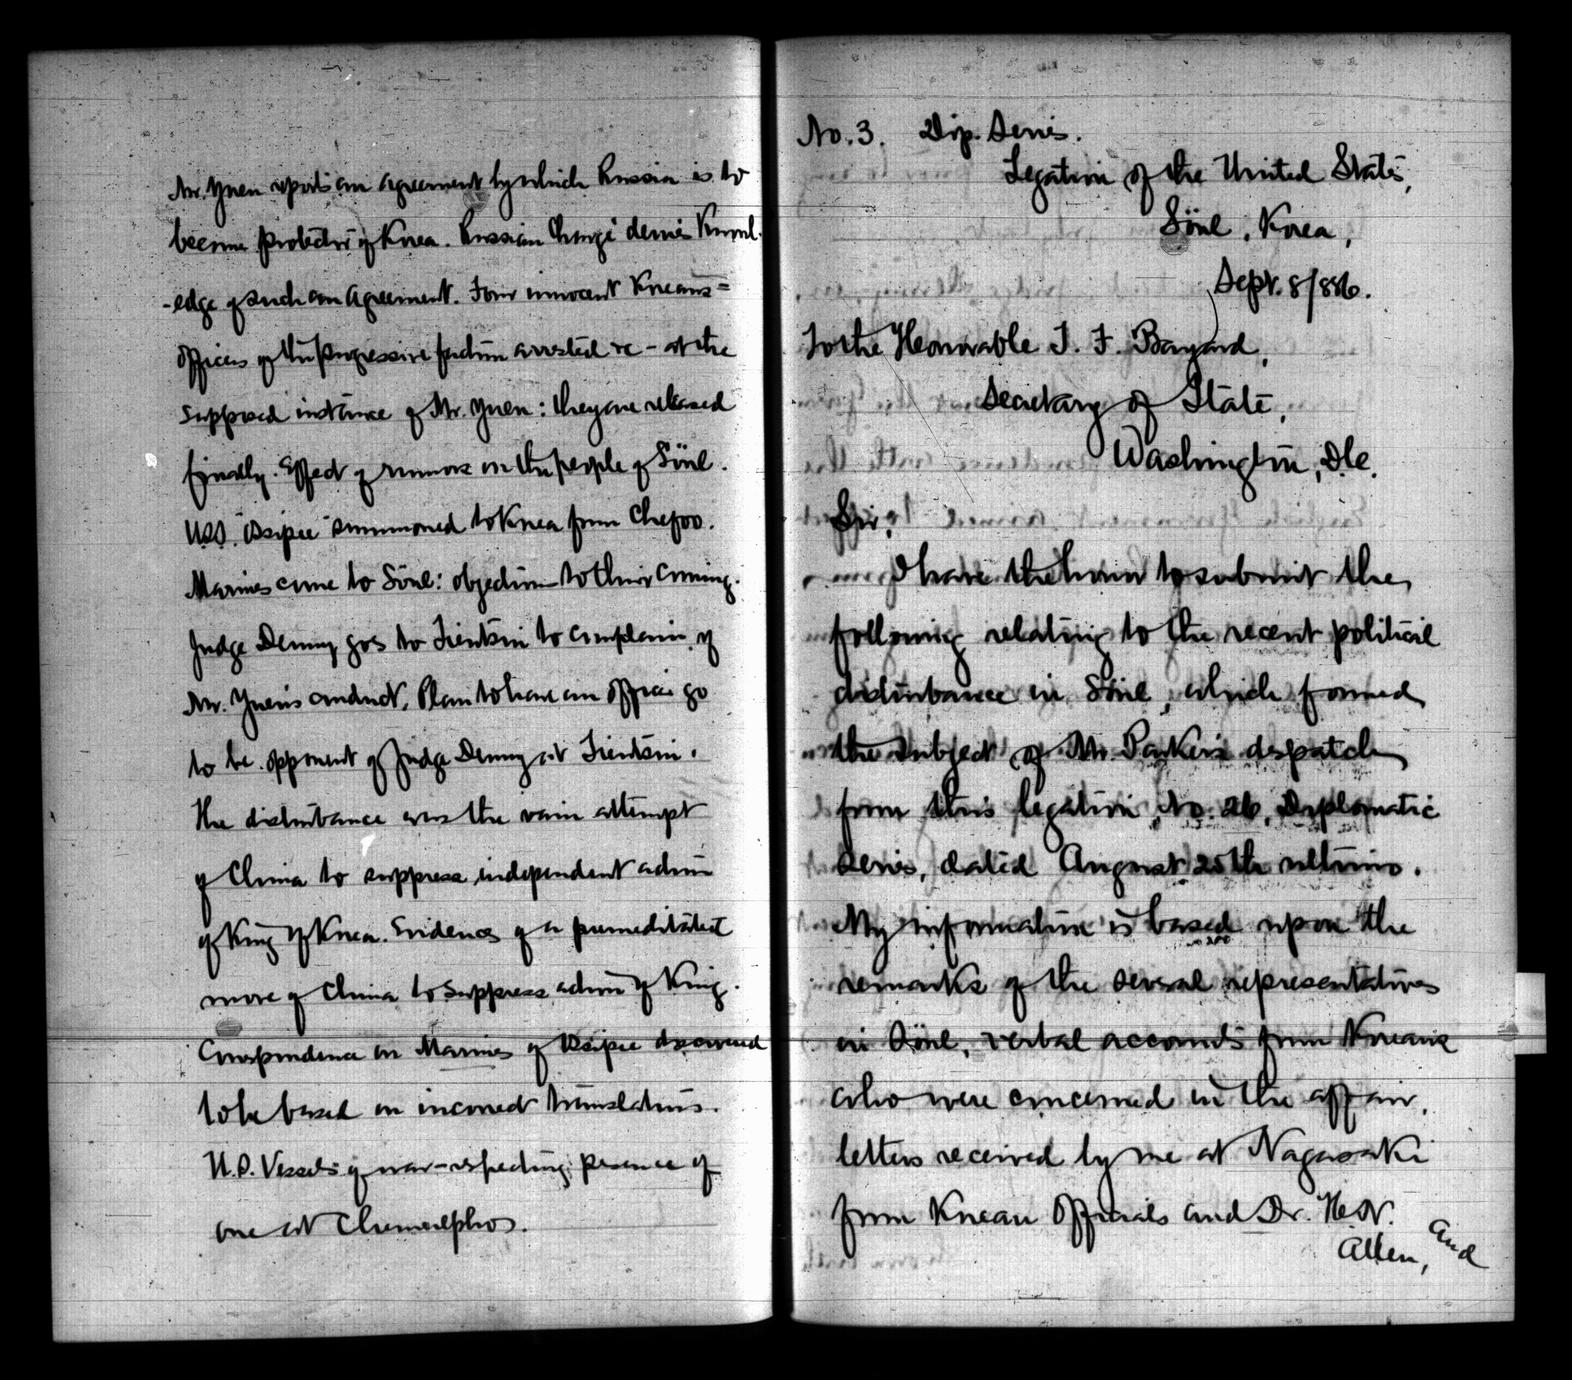 Mr. Yuen reports an agreement by which Russia is to
become protector of Korea. Russian Chargé denies Knowl-
-edge of such an Agreement. Four innocent Koreans=
officers of the progressive faction arrested &c - at the
supposed instance of Mr. Yuen: they are released
finally. Effect of rumors on the people of Söul.
U.S.S. "Ossipee" summoned to Korea from Chefoo.
Marines come to Söul: objection to their coming.
Judge Denny goes to Tientsin to complain of
Mr. Yuen's conduct. Plan to have an officer go
to be opponent of Judge Denny at Tientsin.
The disturbance was the vain attempt
of China to suppress independent action
of King of Korea. Evidences of a premeditated
move of China to suppress action of King.
Correspondence on Marines of Ossipee discovered
to be based on incorrect translations.
U.S. Vessels of war - respecting presence of
one at Chemulpho.
No. 3. Dip. Series.
Legation of the United States,
Söul, Korea,
Sept. 8/886.
To the Honorable T. F. Bayard,
Secretary of State,
Washington, D.C.
Sir,
I have the honor to submit the
following relating to the recent political
disturbance in Söul, which formed
the subject of Mr. Parker's despatch
from this legation, No. 26, Diplomatic
Series, dated August 25th ultimo.
My information is based upon the
remarks of the several representatives
in Söul, verbal accounts from Koreans
who were concerned in the affair,
letters received by me at Nagasaki
from Korean Officials and Dr. H. N.
Allen, and